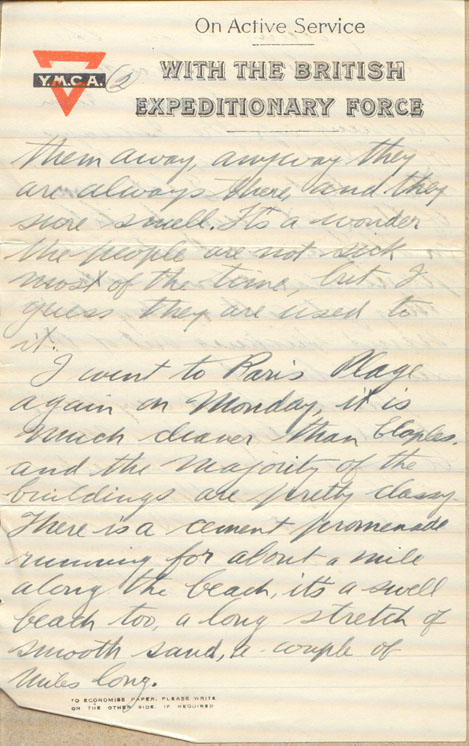 On Active Service
WITH THE BRITISH
EXPEDITIONARY FORCE
Y.M.C.A.
(2)
them away, anyway they
are always there, and they
sure smell. Its a wonder
the people are not sick
most of the time, but I
guess they are used to
it.
I went to Paris Plage
again on Monday, it is
much cleaner than Etaples.
and the majority of the
buildings are pretty classy
There is a cement promenade
running for about a mile
along the beach, its a swell
beach too, a long stretch of
smooth sand, a couple of
miles long.
TO ECONOMISE PAPER, PLEASE WRITE
ON THE OTHER SIDE, IF REQUIRED